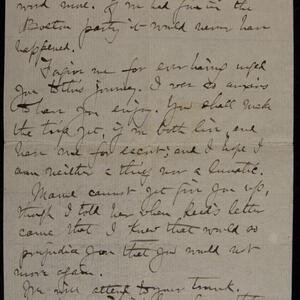 word mine. If we had gone in the
Boston party it would never have
happened.
Forgive me for ever having urged
you to this journey. I was so anxious
to have you enjoy. You shall make
the trip yet, if we both live, and
have me for escort; and I hope I
am neither a thief nor a lunatic.
Mamie cannot yet give you up,
though I told her when Reed's letter
came that I knew that would so
prejudice you that you would not
move again.
We will attend to your trunk.